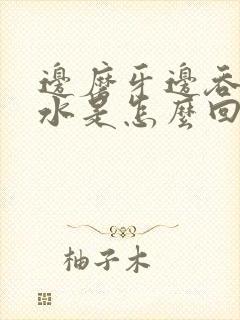 邊磨牙邊吞
水是怎麼回
柚子木